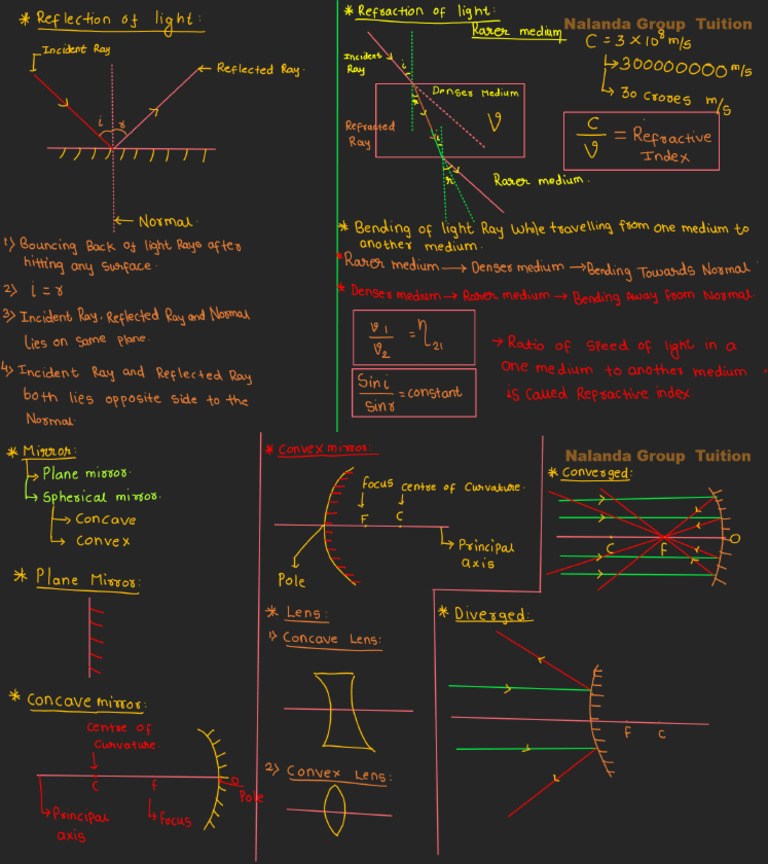 * Reflection of light:
Incident Ray
Reflected Ray
i r
Normal
1) Bouncing Back of light Rays after
hitting any surface.
2) i = r
3) Incident Ray, Reflected Ray and Normal
Lies on same plane.
4) Incident Ray and Reflected Ray
both lies opposite side to the
Normal.
* Refraction of light:
Nalanda Group Tuition
Rarer medium
Incident
Ray
i
Denser Medium
r
V
Refracted
Ray
i
r
Rarer medium.
C = 3 × 10⁸ m/s
300000000 m/s
30 crores m/s
C/V = Refractive
Index
* Bending of light Ray While travelling from one medium to
another medium.
* Rarer medium → Denser medium → Bending Towards Normal
* Denser medium → Rarer medium → Bending Away from Normal
v1/v2 = η21
Sin i/sin r = constant
→ Ratio of speed of light in a
one medium to another medium
is Called Refractive index.
* Mirror:
Plane mirror.
Spherical mirror.
Concave
Convex
* Plane Mirror:
* Concave mirror:
Centre of
Curvature.
C
f
O
Pole
Principal
axis
focus
* Convex mirror:
Focus
Centre of Curvature.
F
C
Principal
axis
Pole
* Lens:
1) Concave Lens:
2) Convex Lens:
Nalanda Group Tuition
* Converged:
C
F
O
* Diverged:
F
C